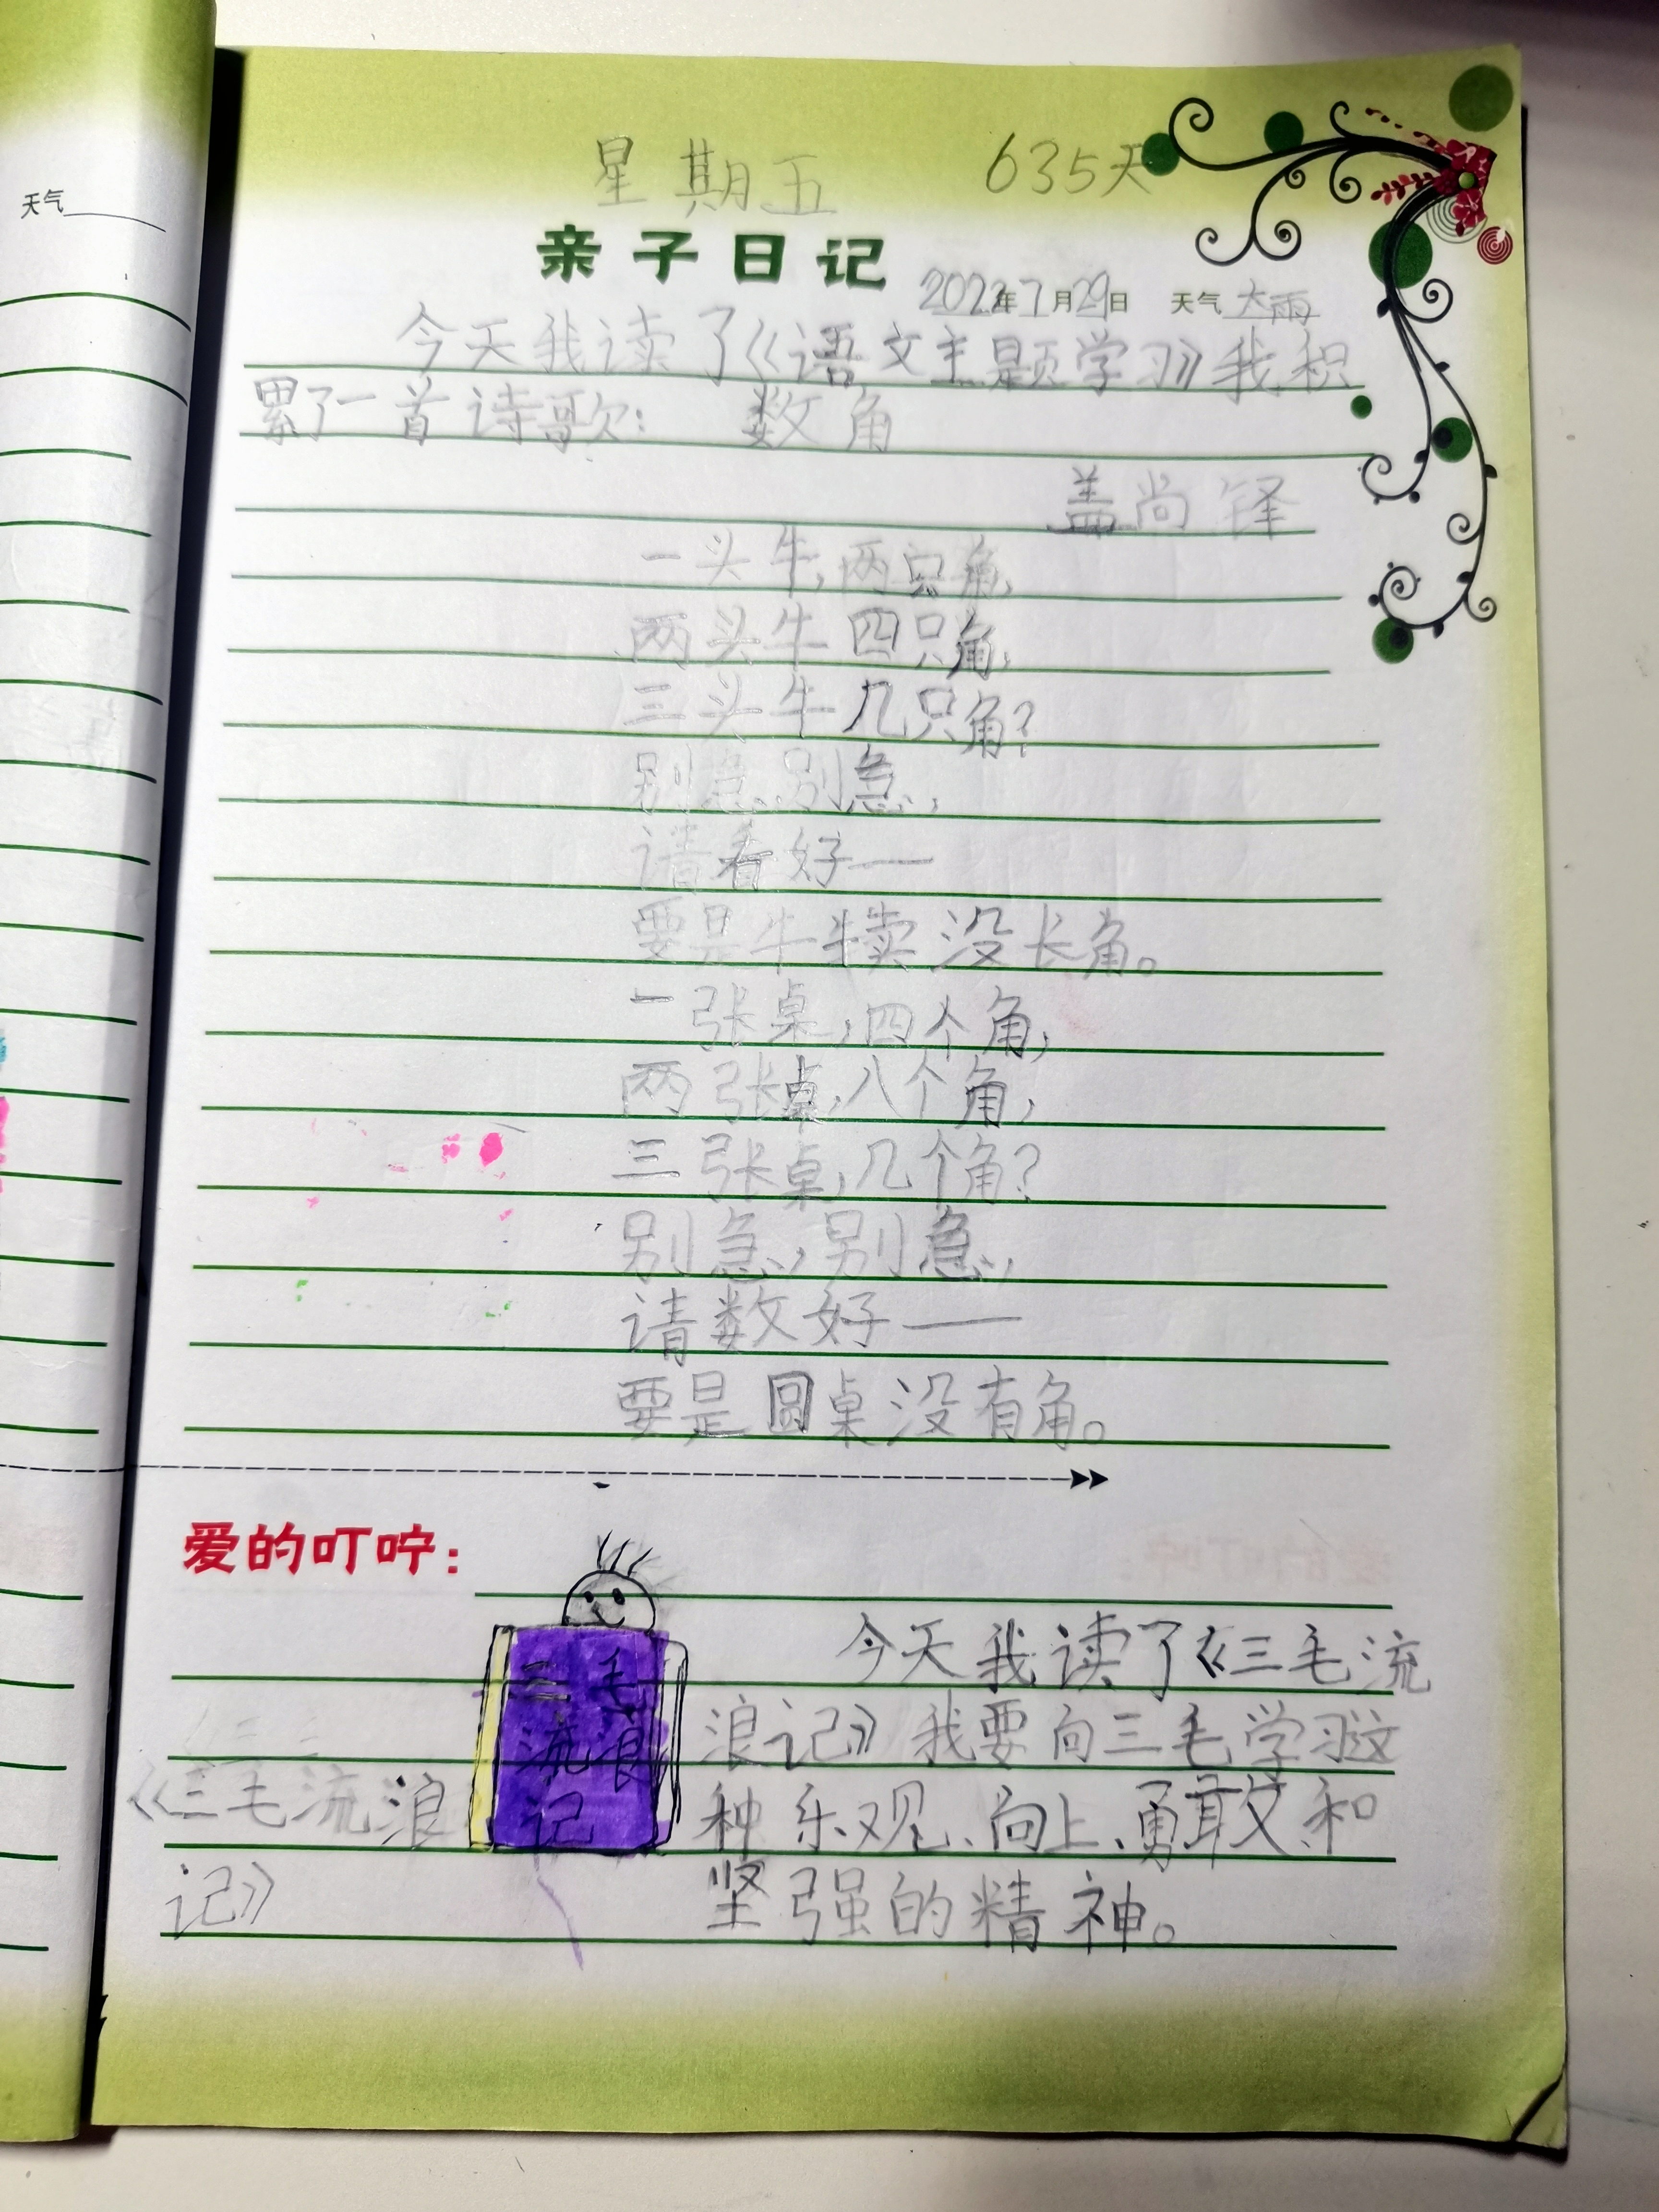 天气
星期五 635天
亲子日记
2022年7月29日 天气 大雨
今天我读了《语文主题学习》我积
累了一首诗歌: 数角
盖尚铎
一头牛,两只角,
两头牛四只角,
三头牛几只角?
别急,别急,
请看好——
要是牛犊没长角。
一张桌,四个角,
两张桌,八个角,
三张桌,几个角?
别急,别急,
请数好——
要是圆桌没有角。
爱的叮咛:
三毛
流浪
记
《三毛流浪
记》
今天我读了《三毛流
浪记》我要向三毛学习这
种乐观、向上、勇敢和
坚强的精神。